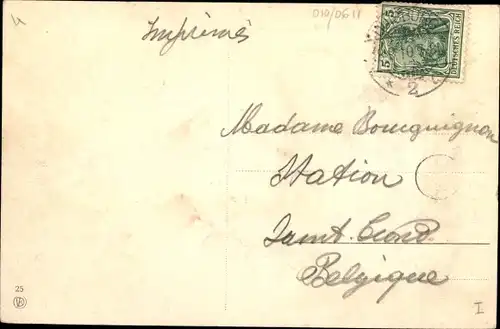 4
010/0611
Imprimés
5
5
DEUTSCHES REICH
* 2
Madame Bourguignon
Station
Saint
Belgique
25
I